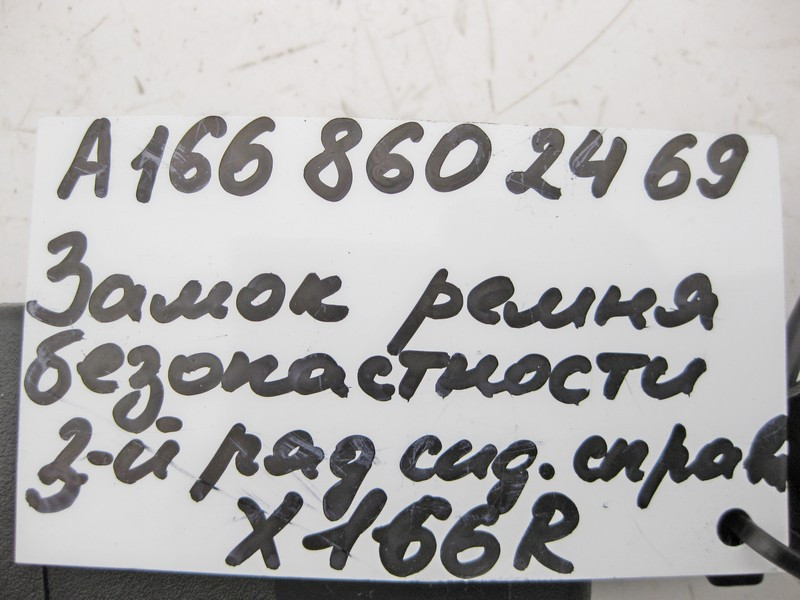 A166 860 24 69
Замок ремня
безопастности
3-й ряд сид. справ
X166R